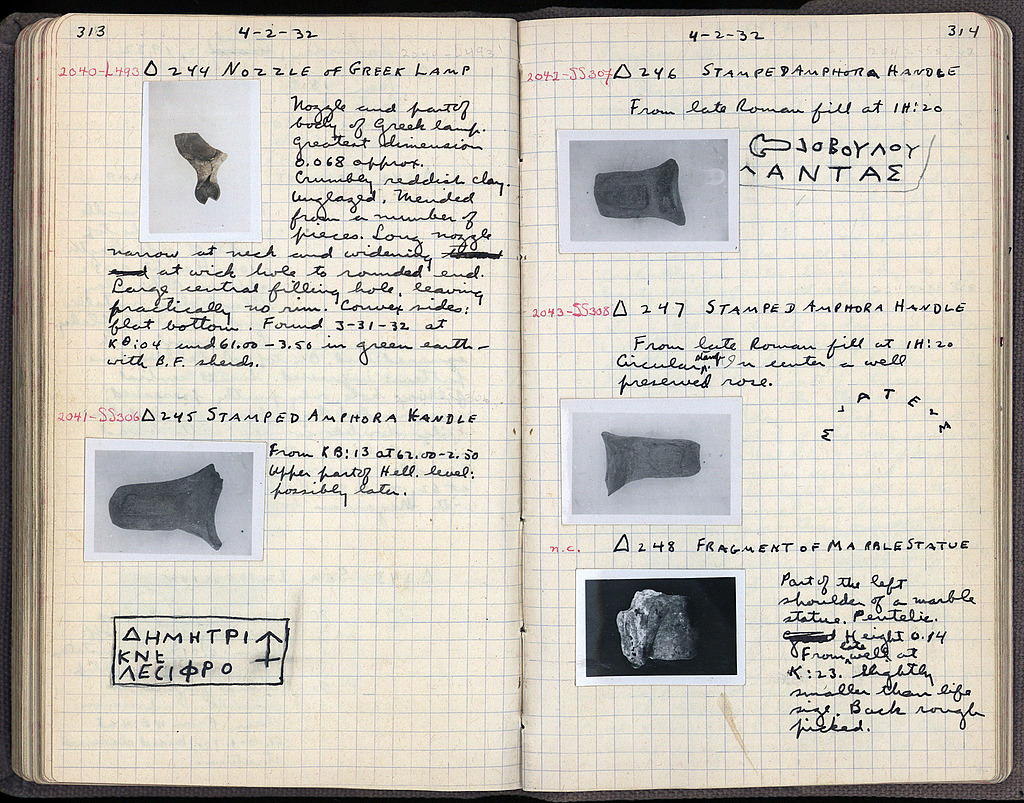 313
4-2-32
2040-L493 Δ 244 NOZZLE OF GREEK LAMP
Nozzle and part of
body of Greek lamp.
Greatest dimension
0.068 approx.
Crumbly reddish clay.
Unglazed. Mended
from a number of
pieces. Long nozzle
narrow at neck and widening
at wick hole to rounded end.
Large central filling hole, leaving
practically no rim. Convex sides:
flat bottom. Found 3-31-32 at
KΘ:04 and 61.00-3.50 in green earth-
with B.F. sherds.
2041-SS306 Δ 245 STAMPED AMPHORA HANDLE
From KB:13 at 62.00-2.50
Upper part of Hell. level:
possibly later.
ΔΗΜΗΤΡΙ
ΚΝΕ
ΛΕΣΙΦΡΟ
4-2-32
314
2042-SS307 Δ 246 STAMPED AMPHORA HANDLE
From late Roman fill at IH:20
ΟΒΟΥΛΟΥ
ΛΑΝΤΑΣ
2043-SS308 Δ 247 STAMPED AMPHORA HANDLE
From late Roman fill at IH:20
Circular stamp. In center a well
preserved rose.
Α Τ Ε
n.c. Δ 248 FRAGMENT OF MARBLE STATUE
Part of the left
shoulder of a marble
statue. Pentelic.
Height 0.14
From late wall at
K:23. Slightly
smaller than life
size. Back rough
picked.